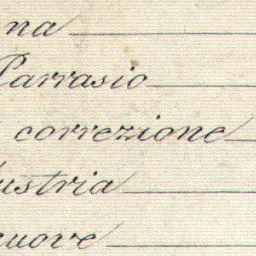 na
Parrasio
correzione
ustria
uove